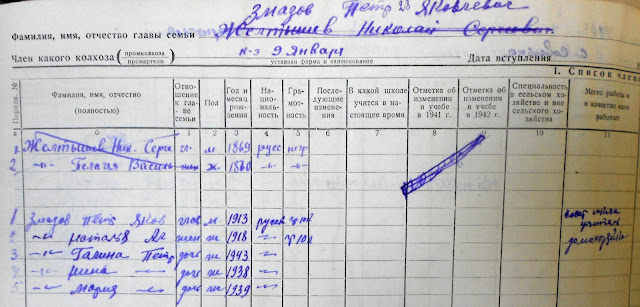 Змазов Петр Яковлевич
Фамилия, имя, отчество главы семьи Желтышев Николай Сергеевич
Член какого колхоза (промколхоза промартели) к-з 9 Января Дата вступления
уставная форма и наименование
I. Список член
Порядк. №
Фамилия, имя, отчество (полностью)
Отношение к главе семьи
Пол
Год и месяц рождения
Национальность
Грамотность
Последующие изменения
В какой школе учится в настоящее время
Отметка об изменении в учебе в 1941 г.
Отметка об изменении в учебе в 1942 г.
Специальность в сельском хозяйстве и вне сельского хозяйства
Место работы и в качестве кого работает
б 1 2 3 4 5 6 7 8 9 10 11
1 Желтышев Ник. Серге гл. м 1869 русс негр
2 -"- Пелагея Василь жен ж 1860 -"- -"-
1 Змазов Петр Яков глав м 1913 русск
2 -"- Наталья Як жен ж 1918 -"- учитель
3 -"- Галина Петр доч ж 1943 -"- домохозяйка
4 -"- -"- доч ж 1938 -"-
5 -"- Мария -"- доч ж 1939 -"-